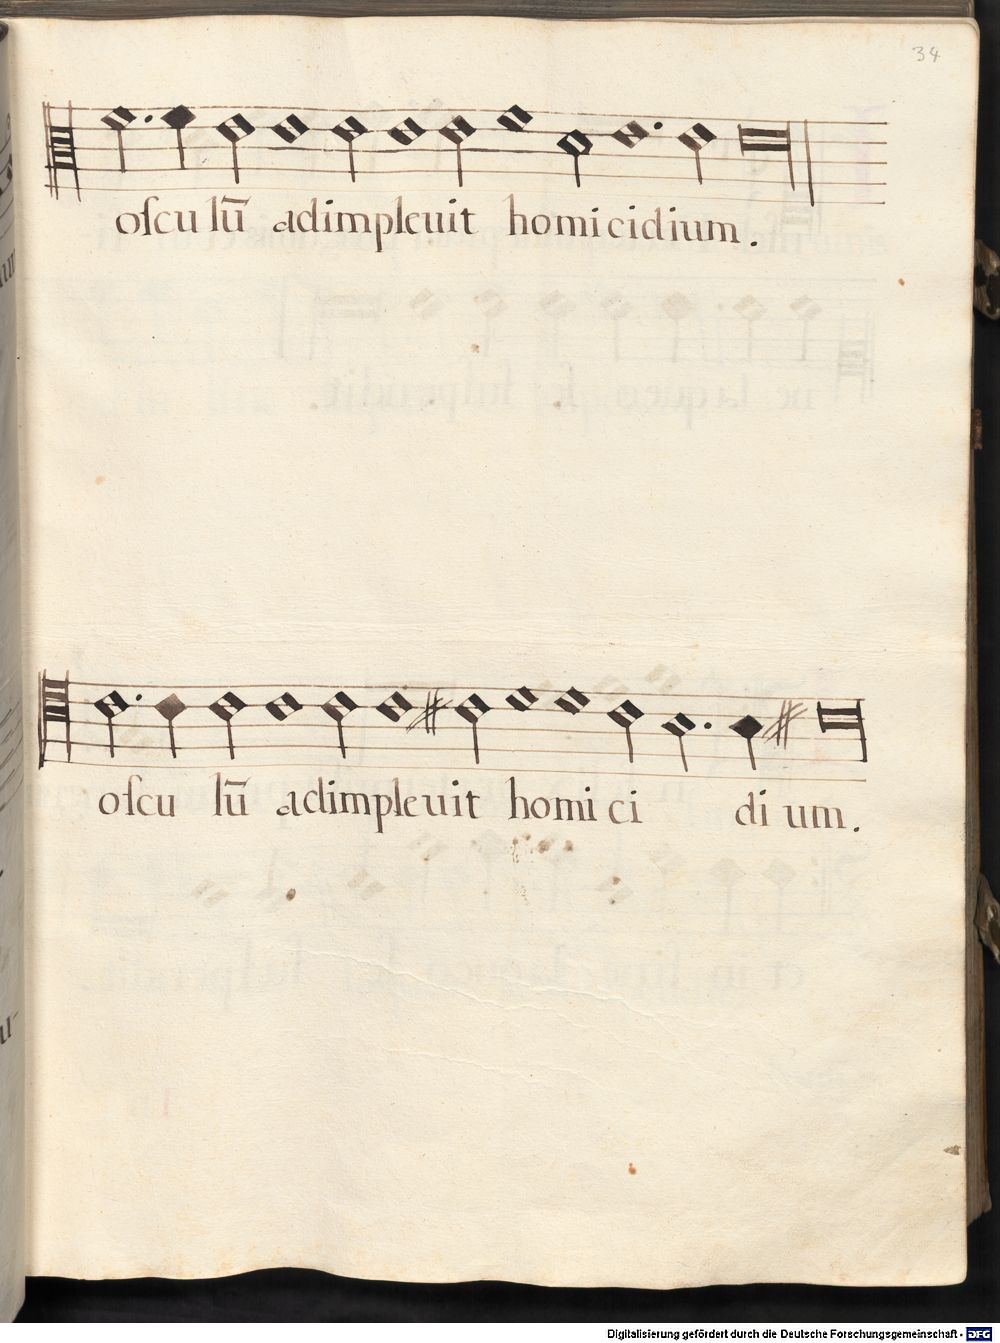 34
oſcu lū adimpleuit homicidium.
oſcu lū adimpleuit homi ci di um.
Digitalisierung gefördert durch die Deutsche Forschungsgemeinschaft - DFG